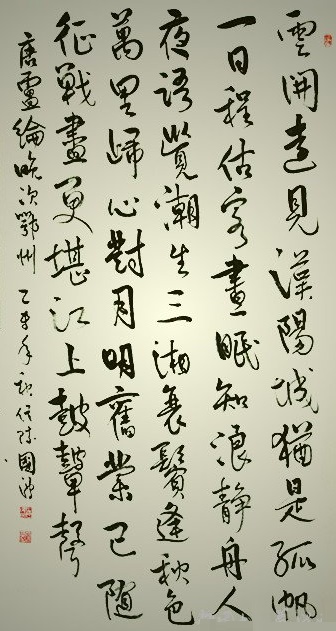 雲開遠見漢陽城猶是孤帆
一日程估客晝眠知浪靜舟人
夜語覺潮生三湘衰鬢逢秋色
萬里歸心對月明舊業已隨
征戰盡更堪江上鼓鼙聲
唐盧綸晚次鄂州 乙未年秋 國